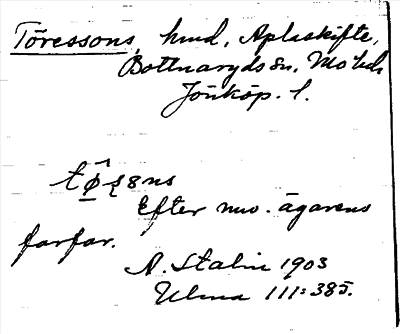 Töressons, hmd, Aplaskifte,
Bottnaryds sn, Mo hd.
Jönköp. l.
Efter nuv. ägarens
farfar.
A. Stalin 1903
Ulma 111:385.